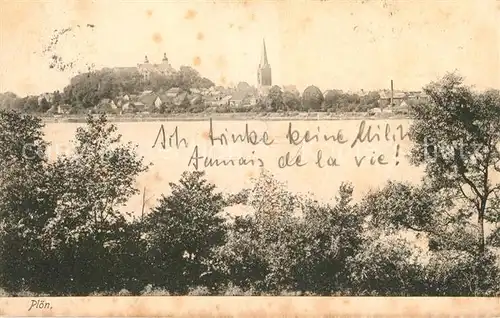 Ich trinke keine Milch
Jamais de la vie!
Plön.